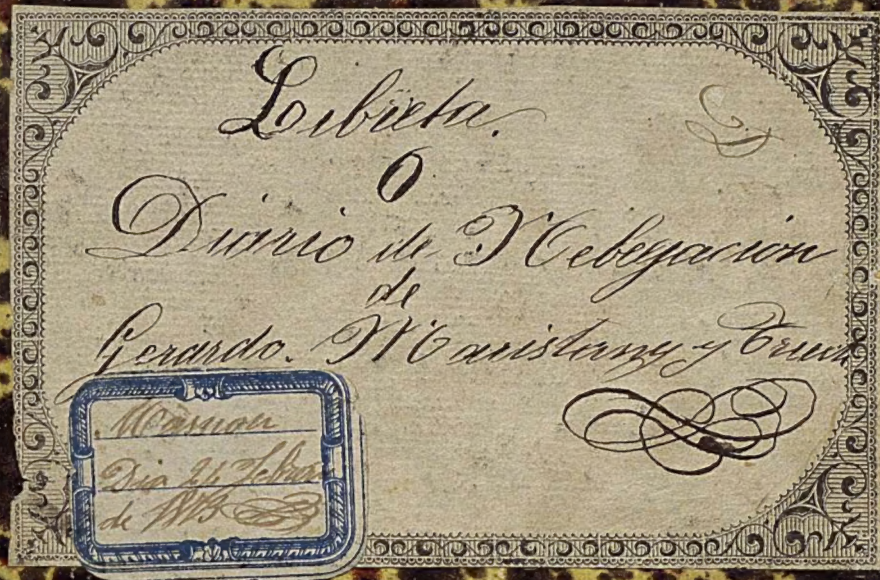 Libreta.
O
Diario de Nebegacion
de
Gerardo. Maristany y
Masnou
Dia 24 Febrero
de